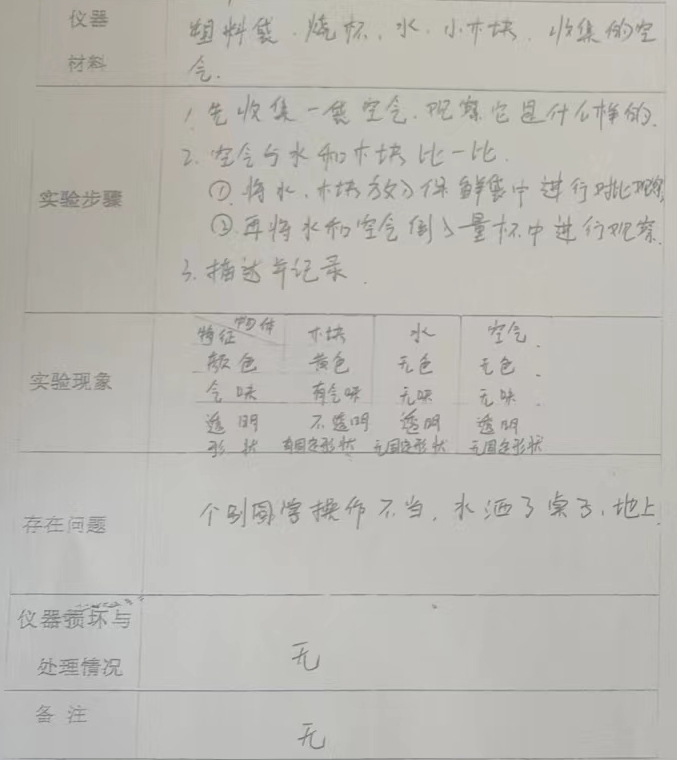 仪器
材料
塑料袋、烧杯、水、小木块、收集的空
气.
实验步骤
1.先收集一袋空气,观察它是什么样的.
2.空气与水和木块比一比.
①.将水、木块放入保鲜袋中进行对比观察
②.再将水和空气倒入量杯中进行观察.
3.描述并记录.
实验现象
特征 物体 木块 水 空气
颜色 黄色 无色 无色
气味 有气味 无味 无味
透明 不透明 透明 透明
形状 有固定形状 无固定形状 无固定形状
存在问题
个别同学操作不当,水洒了桌子、地上.
仪器损坏与
处理情况
无
备注
无